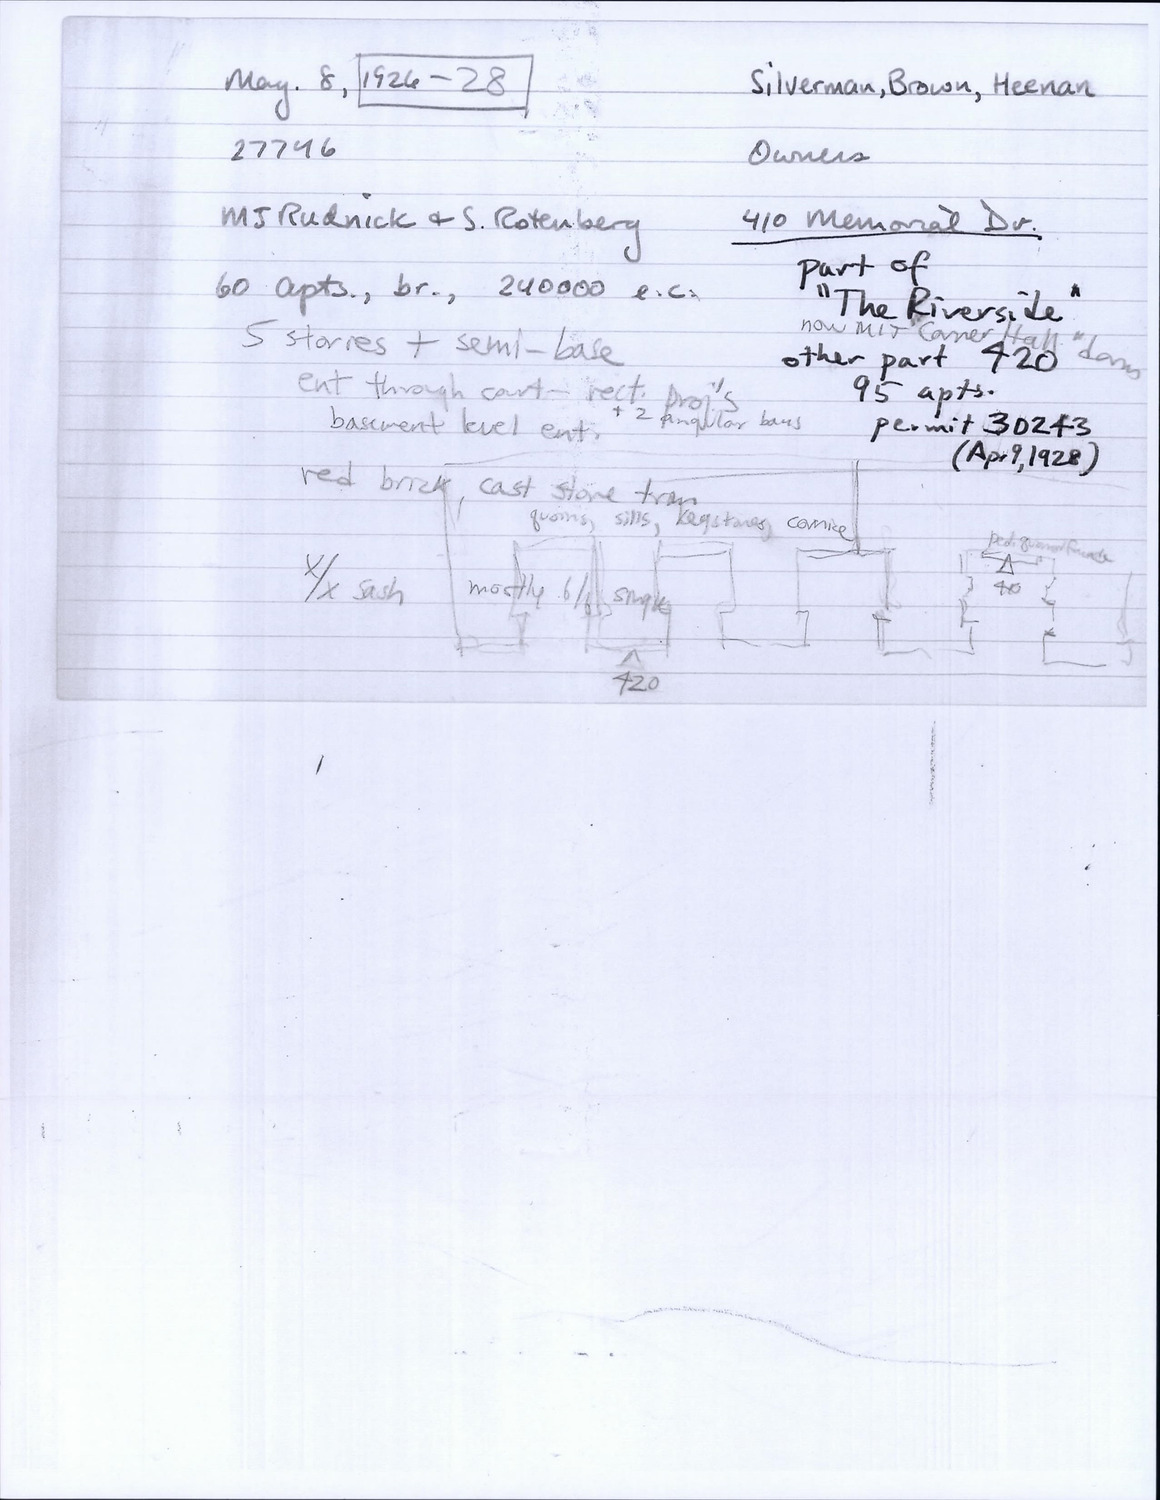 May. 8, 1926-28
Silverman, Brown, Heenan
27746
Owners
MJ Rudnick & S. Rotenberg
410 Memorial Dr.
60 apts., br., 240000 e.c.
part of
"The Riverside"
now MIT "Hall" dorms
5 stories + semi-base
other part 420
ent through court - rect. proj's
95 apts.
+ 2 angular bays
basement level ent.
permit 30243
(Apr 9, 1928)
red brick, cast stone
quoins, sills, keystones, cornice
Y/x sash
mostly 6/ single
420